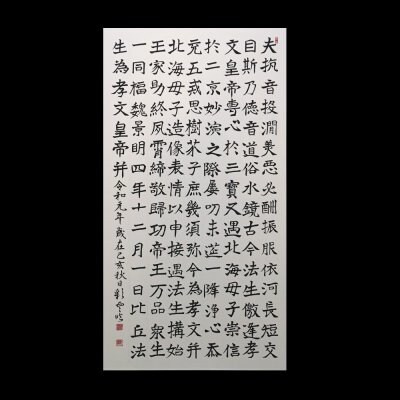 夫抗音投澗美惡必酬振服依河長短交
曰斯乃德音道俗水鏡古今法生儌逢孝
文皇帝專心於三寶又遇北海母子崇信
於二京妙演之際屢叨末筵一降淨心忝
充五戒思樹芥子庶幾須弥今為孝文并
北海母子造像表情以申接遇法生構始
王家助終夙霄締敬歸功帝王万品衆生
一同福魏景明四年十二月一日比丘法
生為孝文皇帝并 令和元年歲在己亥秋日彩雲临